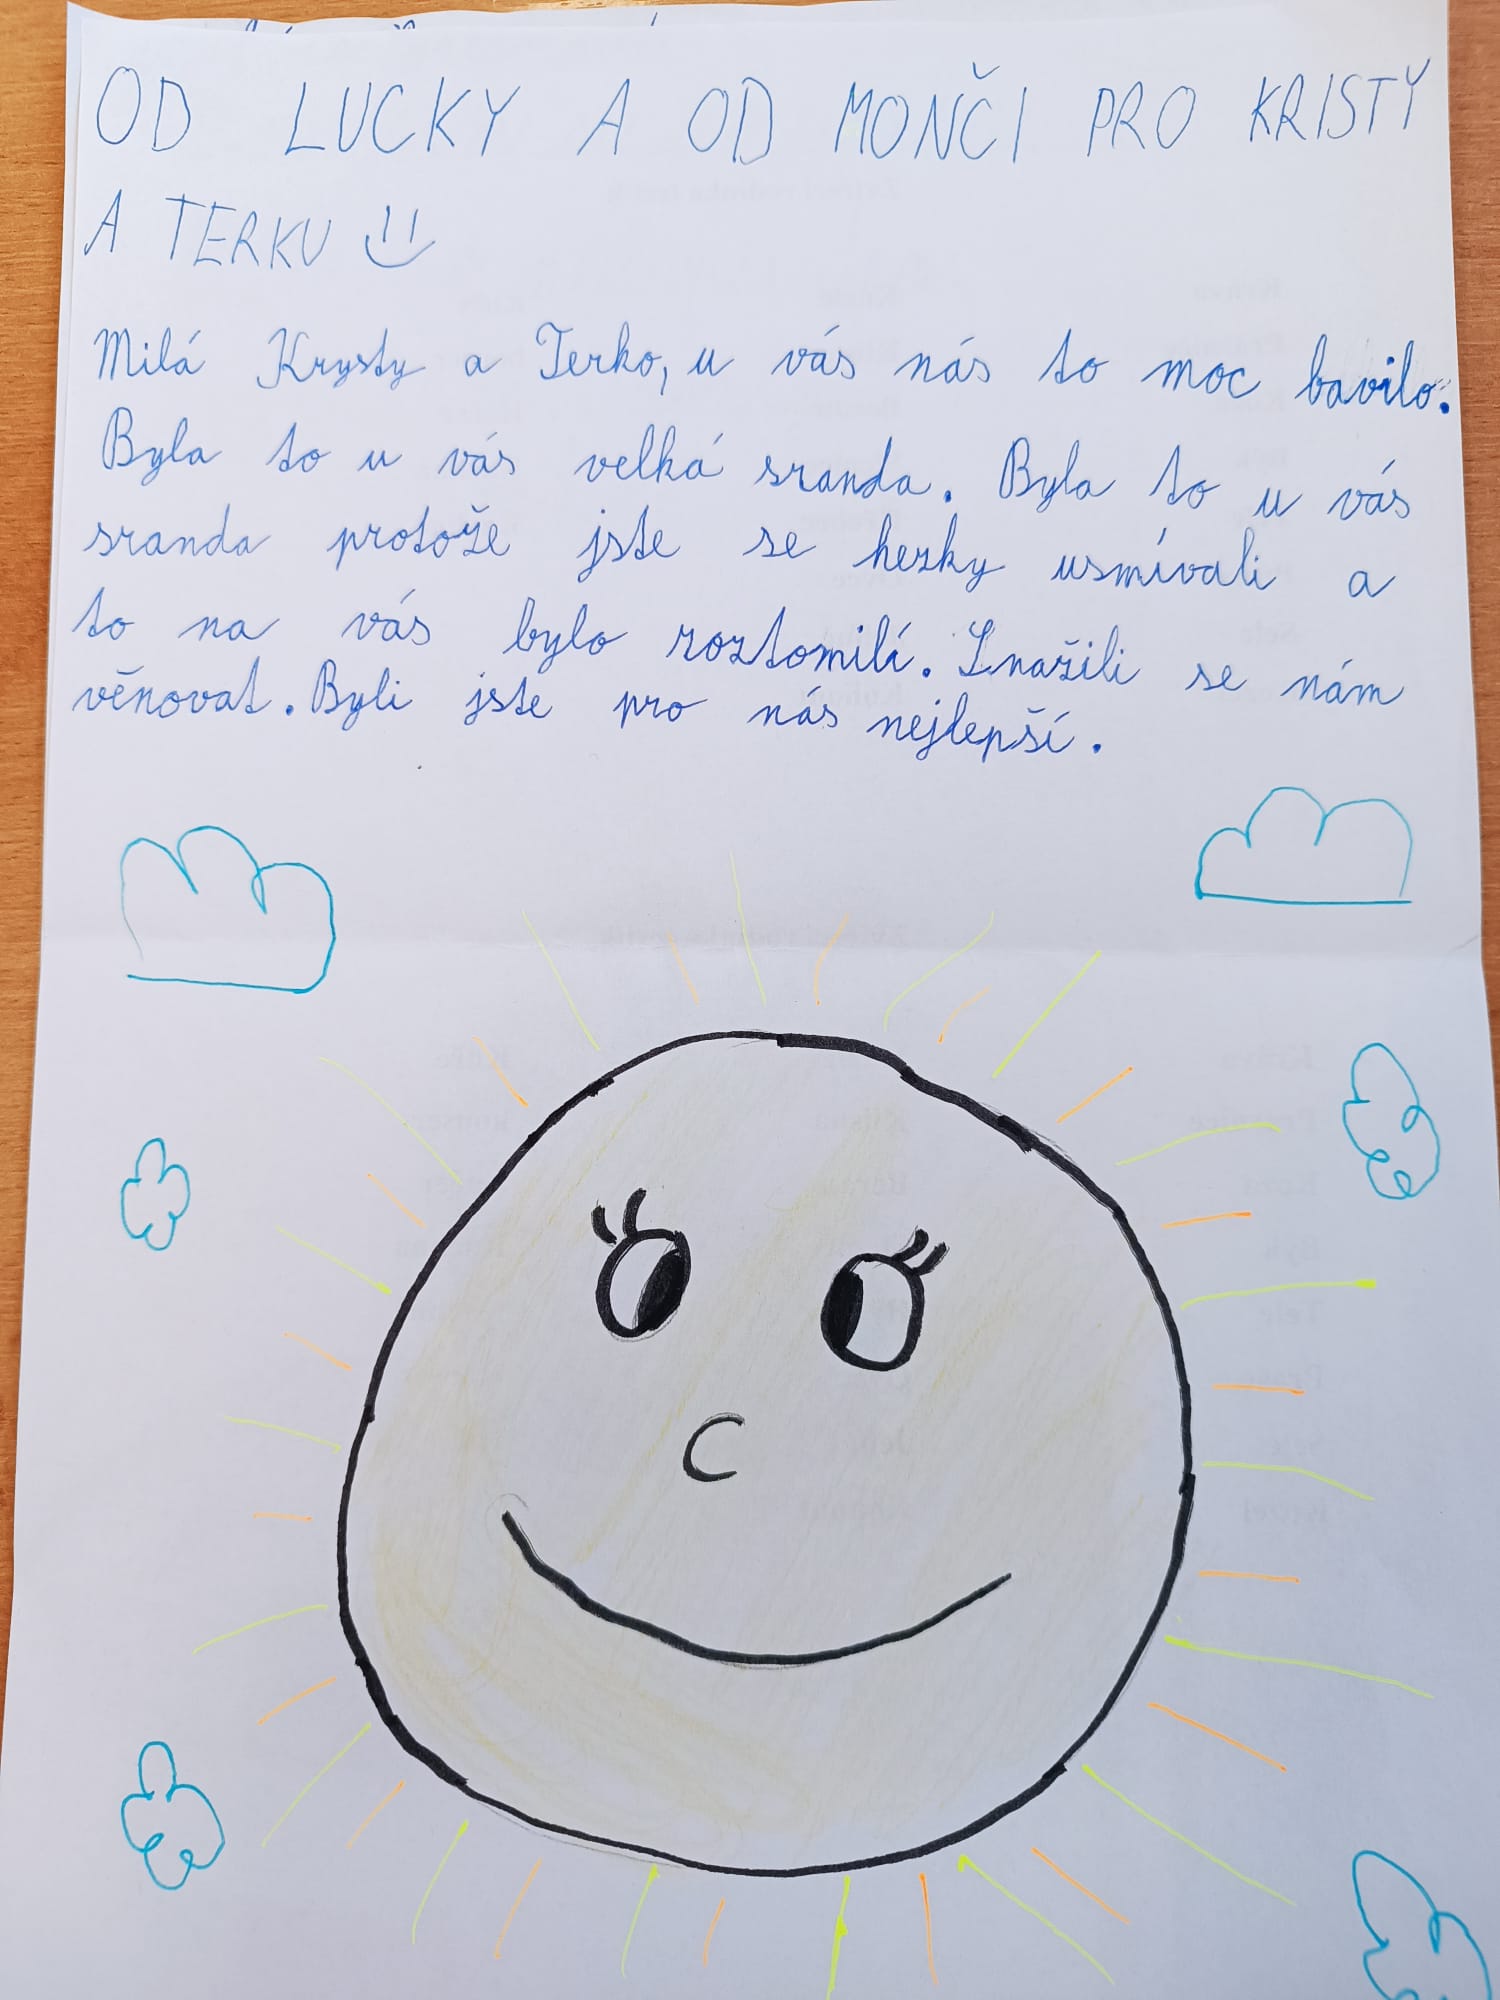 OD LUCKY A OD MONČI PRO KRISTY
A TERKU
Milá Krysty a Terko, u vás nás to moc bavilo.
Byla to u vás velká sranda. Byla to u vás
sranda protože jste se hezky usmívali a
to na vás bylo roztomilí. Snažili se nám
věnovat. Byli jste pro nás nejlepší.